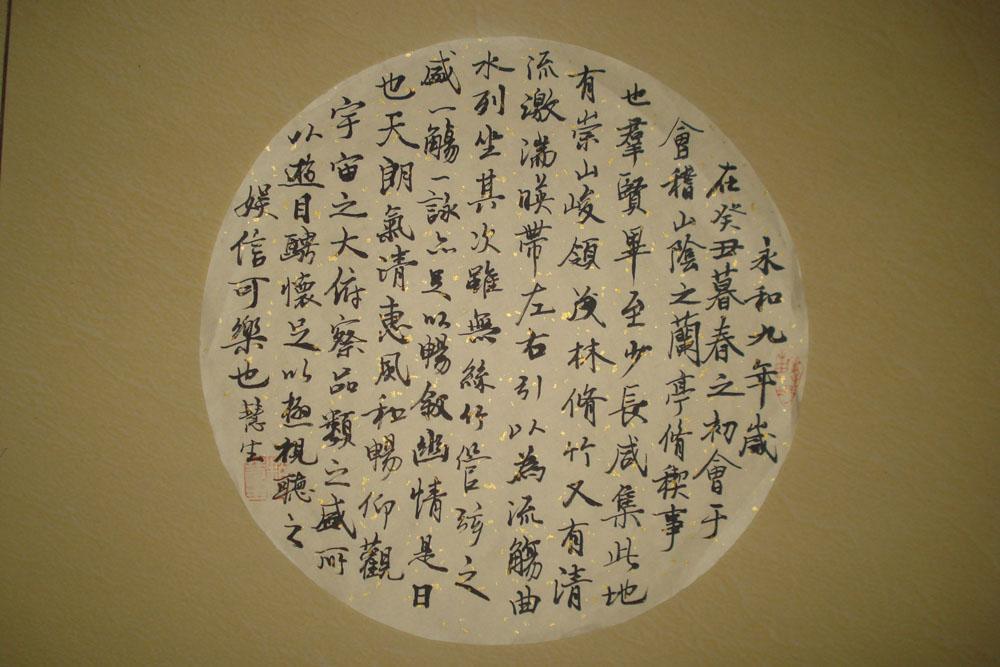 永和九年歲
在癸丑暮春之初會于
會稽山陰之蘭亭脩稧事
也羣賢畢至少長咸集此地
有崇山峻領茂林脩竹又有清
流激湍暎帶左右引以為流觴曲
水列坐其次雖無絲竹管弦之
盛一觴一詠亦足以暢敘幽情是日
也天朗氣清惠風和暢仰觀
宇宙之大俯察品類之盛所
以遊目騁懷足以極視聽之
娛信可樂也 慧生